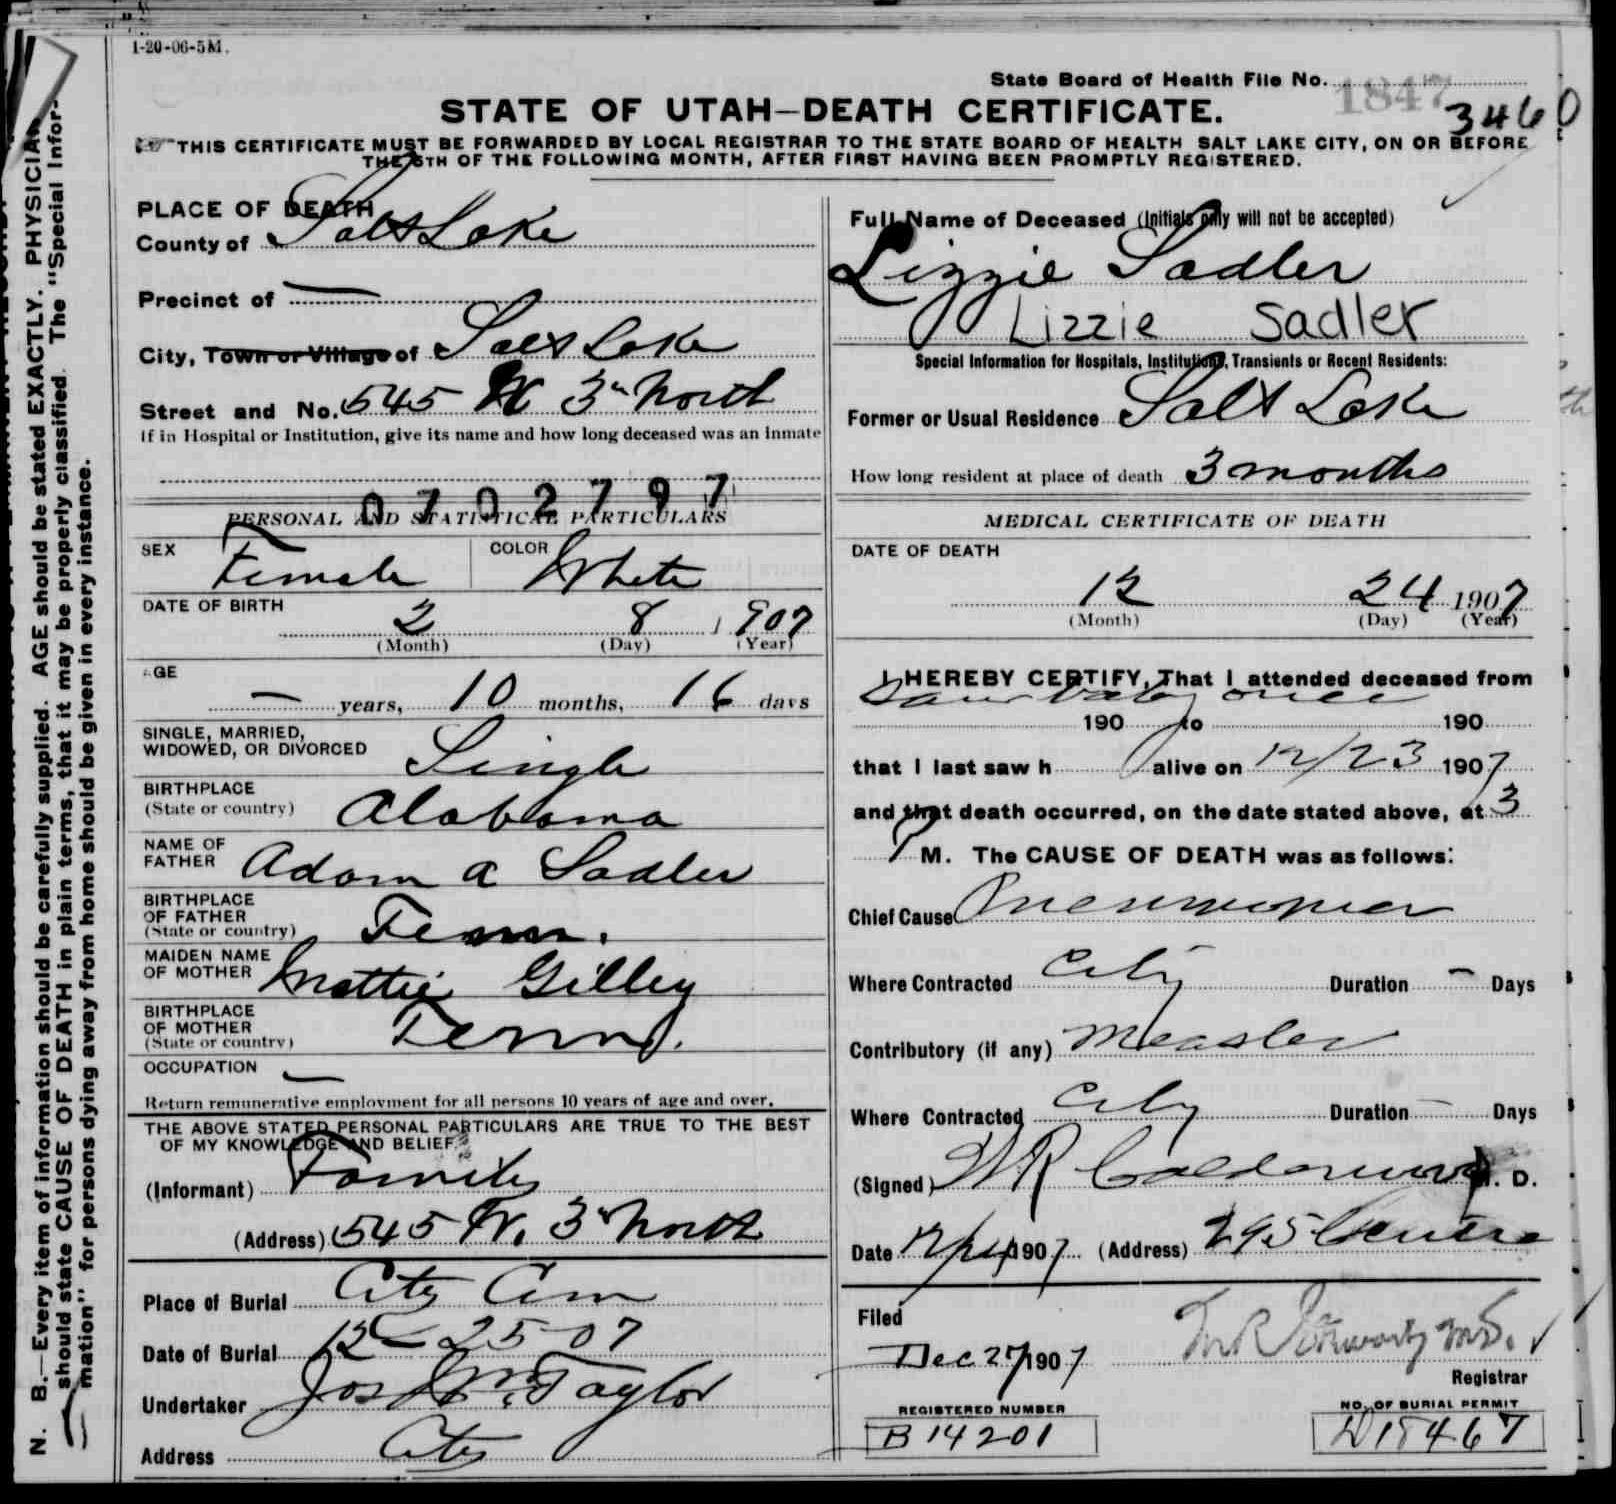 1-20-06-5M.
State Board of Health File No. 1847
3460
STATE OF UTAH—DEATH CERTIFICATE.
THIS CERTIFICATE MUST BE FORWARDED BY LOCAL REGISTRAR TO THE STATE BOARD OF HEALTH SALT LAKE CITY, ON OR BEFORE
THE 5TH OF THE FOLLOWING MONTH, AFTER FIRST HAVING BEEN PROMPTLY REGISTERED.
PLACE OF DEATH
County of Salt Lake
Precinct of —
City, Town or Village of Salt Lake
Street and No. 545 W 3rd North
If in Hospital or Institution, give its name and how long deceased was an inmate
0702797
PERSONAL AND STATISTICAL PARTICULARS
SEX Female COLOR White
DATE OF BIRTH
2 8 1907
(Month) (Day) (Year)
AGE
— years, 10 months, 16 days
SINGLE, MARRIED,
WIDOWED, OR DIVORCED Single
BIRTHPLACE
(State or country) Alabama
NAME OF
FATHER Adam A Sadler
BIRTHPLACE
OF FATHER
(State or country) Tenn.
MAIDEN NAME
OF MOTHER Mattie Gilley
BIRTHPLACE
OF MOTHER
(State or country) Tenn.
OCCUPATION —
Return remunerative employment for all persons 10 years of age and over.
THE ABOVE STATED PERSONAL PARTICULARS ARE TRUE TO THE BEST
OF MY KNOWLEDGE AND BELIEF
(Informant) Family
(Address) 545 W. 3rd North
Place of Burial City Cem
Date of Burial 12-25-07
Undertaker Jos Wm. Taylor
Address City
Full Name of Deceased (Initials only will not be accepted)
Lizzie Sadler
Lizzie Sadler
Special Information for Hospitals, Institutions, Transients or Recent Residents:
Former or Usual Residence Salt Lake
How long resident at place of death 3 months
MEDICAL CERTIFICATE OF DEATH
DATE OF DEATH
12 24 1907
(Month) (Day) (Year)
I HEREBY CERTIFY, That I attended deceased from
saw baby once
190 to 190
that I last saw h alive on 12/23 1907
and that death occurred, on the date stated above, at 3
P M. The CAUSE OF DEATH was as follows:
Chief Cause Pneumonia
Where Contracted City Duration — Days
Contributory (if any) Measles
Where Contracted City Duration — Days
(Signed) W R Calderwood M. D.
Date 12/24 1907 (Address) 295 Centre
Filed
Dec 27 1907
Registrar
REGISTERED NUMBER
B 14201
NO. OF BURIAL PERMIT
D18467
N. B.—Every item of information should be carefully supplied. AGE should be stated EXACTLY. PHYSICIAN
should state CAUSE OF DEATH in plain terms, that it may be properly classified. The "Special Infor-
mation" for persons dying away from home should be given in every instance.